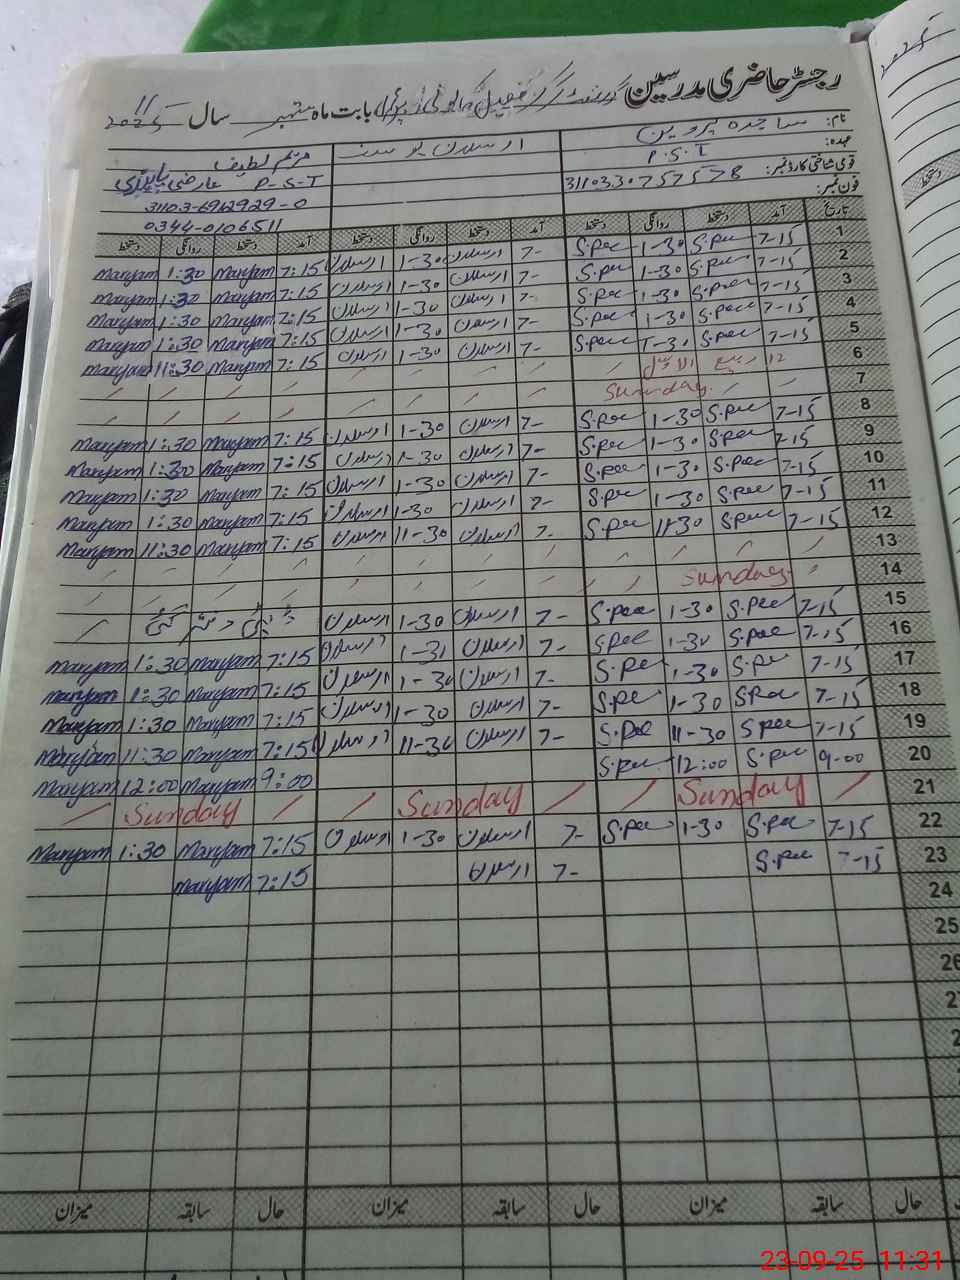 رجسٹر حاضری مدرسین گورنمنٹ گرلز بابت ماہ ستمبر سال 2025
2025
نام: ساجدہ پروین ارسلان یوسف مریم لطیف
عہدہ: P.S.T P-S-T عارضی
قومی شناختی کارڈ نمبر: 3110330757578 31103-6962929-0
فون نمبر: 0344-0106511
تاریخ آمد دستخط روانگی دستخط آمد دستخط روانگی دستخط آمد دستخط روانگی دستخط
1 7-15 S.pee 1-30 S.pee 7- ارسلان 1-30 ارسلان 7:15 Maryam 1:30 Maryam
2 7-15 S.pee 1-30 S.pee 7- ارسلان 1-30 ارسلان 7:15 Maryam 1:30 Maryam
3 7-15 S.pee 1-30 S.pee 7- ارسلان 1-30 ارسلان 7:15 Maryam 1:30 Maryam
4 7-15 S.pee 1-30 S.pee 7- ارسلان 1-30 ارسلان 7:15 Maryam 1:30 Maryam
5 7-15 S.pee 1-30 S.pee 7- ارسلان 1-30 ارسلان 7:15 Maryam 11:30 Maryam
6 12 ربیع الاول
7 Sunday
8 7-15 S.pee 1-30 S.pee 7- ارسلان 1-30 ارسلان 7:15 Maryam 1:30 Maryam
9 7-15 S.pee 1-30 S.pee 7- ارسلان 1-30 ارسلان 7:15 Maryam 1:30 Maryam
10 7-15 S.pee 1-30 S.pee 7- ارسلان 1-30 ارسلان 7:15 Maryam 1:30 Maryam
11 7-15 S.pee 1-30 S.pee 7- ارسلان 1-30 ارسلان 7:15 Maryam 1:30 Maryam
12 7-15 S.pee 11-30 S.pee 7- ارسلان 11-30 ارسلان 7:15 Maryam 11:30 Maryam
13
14 Sunday
15 7-15 S.pee 1-30 S.pee 7- ارسلان 1-30 ارسلان
16 7-15 S.pee 1-30 S.pee 7- ارسلان 1-31 ارسلان 7:15 Maryam 1:30 Maryam
17 7-15 S.pe 1-30 S.pe 7- ارسلان 1-30 ارسلان 7:15 Maryam 1:30 Maryam
18 7-15 S.pee 1-30 S.pe 7- ارسلان 1-30 ارسلان 7:15 Maryam 1:30 Maryam
19 7-15 S.pee 11-30 S.pee 7- ارسلان 11-30 ارسلان 7:15 Maryam 11:30 Maryam
20 9-00 S.pee 12:00 S.pee 9:00 Maryam 12:00 Maryam
21 Sunday Sunday Sunday
22 7-15 S.pee 1-30 S.pee 7- ارسلان 1-30 ارسلان 7:15 Maryam 1:30 Maryam
23 7-15 S.pee 7- ارسلان 7:15 Maryam
24
25
26
حال سابقہ میزان حال سابقہ میزان حال سابقہ میزان
23-09-25 11:31